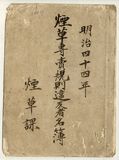 明治四十四年
煙草專賣規則違反者名簿
煙草課